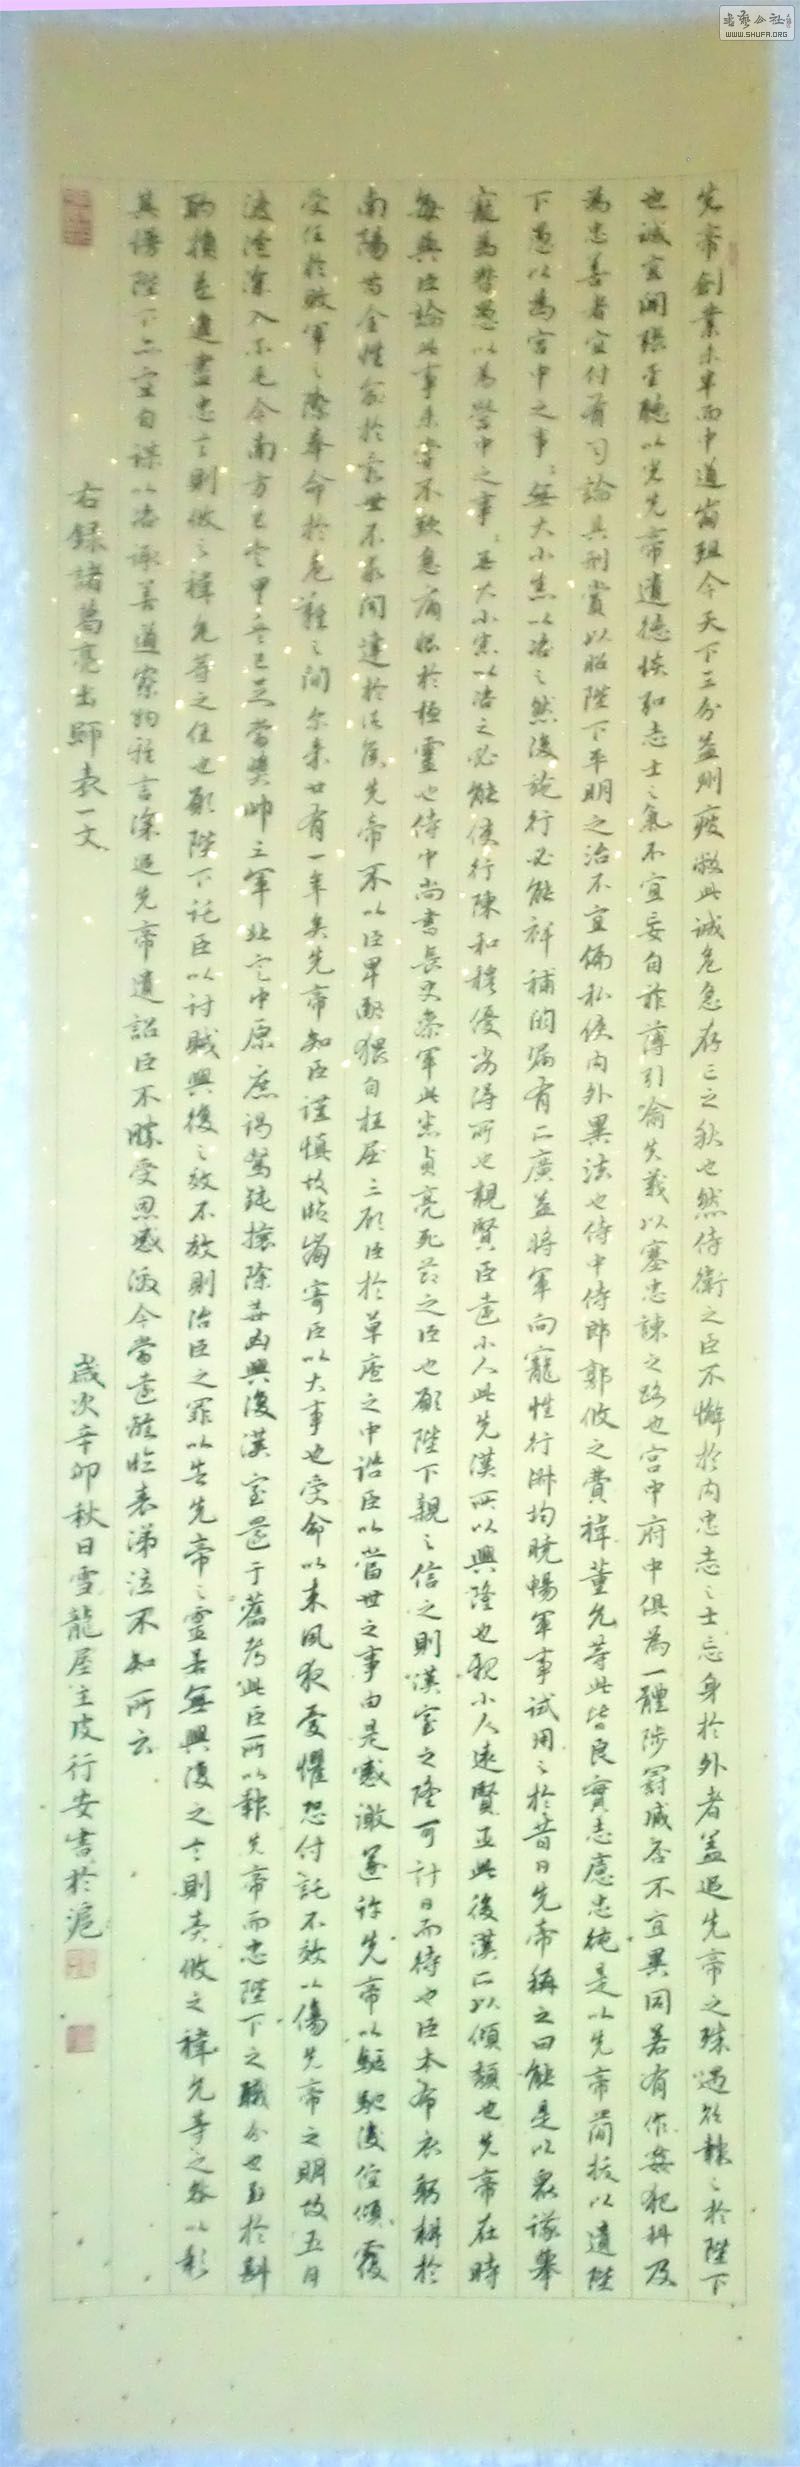 先帝創業未半而中道崩殂今天下三分益州疲敝此誠危急存亡之秋也然侍衛之臣不懈於內忠志之士忘身於外者蓋追先帝之殊遇欲報之於陛下
也誠宜開張聖聽以光先帝遺德恢弘志士之氣不宜妄自菲薄引喻失義以塞忠諫之路也宮中府中俱為一體陟罰臧否不宜異同若有作姦犯科及
為忠善者宜付有司論其刑賞以昭陛下平明之治不宜偏私使內外異法也侍中侍郎郭攸之費禕董允等此皆良實志慮忠純是以先帝簡拔以遺陛
下愚以為宮中之事事無大小悉以咨之然後施行必能裨補闕漏有所廣益將軍向寵性行淑均曉暢軍事試用之於昔日先帝稱之曰能是以眾議舉
寵為督愚以為營中之事事無大小悉以咨之必能使行陳和穆優劣得所也親賢臣遠小人此先漢所以興隆也親小人遠賢臣此後漢所以傾頹也先帝在時
每與臣論此事未嘗不歎息痛恨於桓靈也侍中尚書長史參軍此悉貞亮死節之臣也願陛下親之信之則漢室之隆可計日而待也臣本布衣躬耕於
南陽苟全性命於亂世不求聞達於諸侯先帝不以臣卑鄙猥自枉屈三顧臣於草廬之中諮臣以當世之事由是感激遂許先帝以驅馳後值傾覆
受任於敗軍之際奉命於危難之間爾來廿有一年矣先帝知臣謹慎故臨崩寄臣以大事也受命以來夙夜憂懼恐付託不效以傷先帝之明故五月
渡瀘深入不毛今南方已定甲兵已足當獎帥三軍北定中原庶竭駑鈍攘除姦凶興復漢室還于舊都此臣所以報先帝而忠陛下之職分也至於斟
酌損益進盡忠言則攸之禕允等之任也願陛下託臣以討賊興復之效不效則治臣之罪以告先帝之靈若無興復之言則責攸之禕允等之咎以彰
其慢陛下亦宜自謀以咨諏善道察納雅言深追先帝遺詔臣不勝受恩感激今當遠離臨表涕泣不知所云
右錄諸葛亮出師表一文
歲次辛卯秋日雪龍屋主皮行安書於滬
WWW.SHUFA.ORG